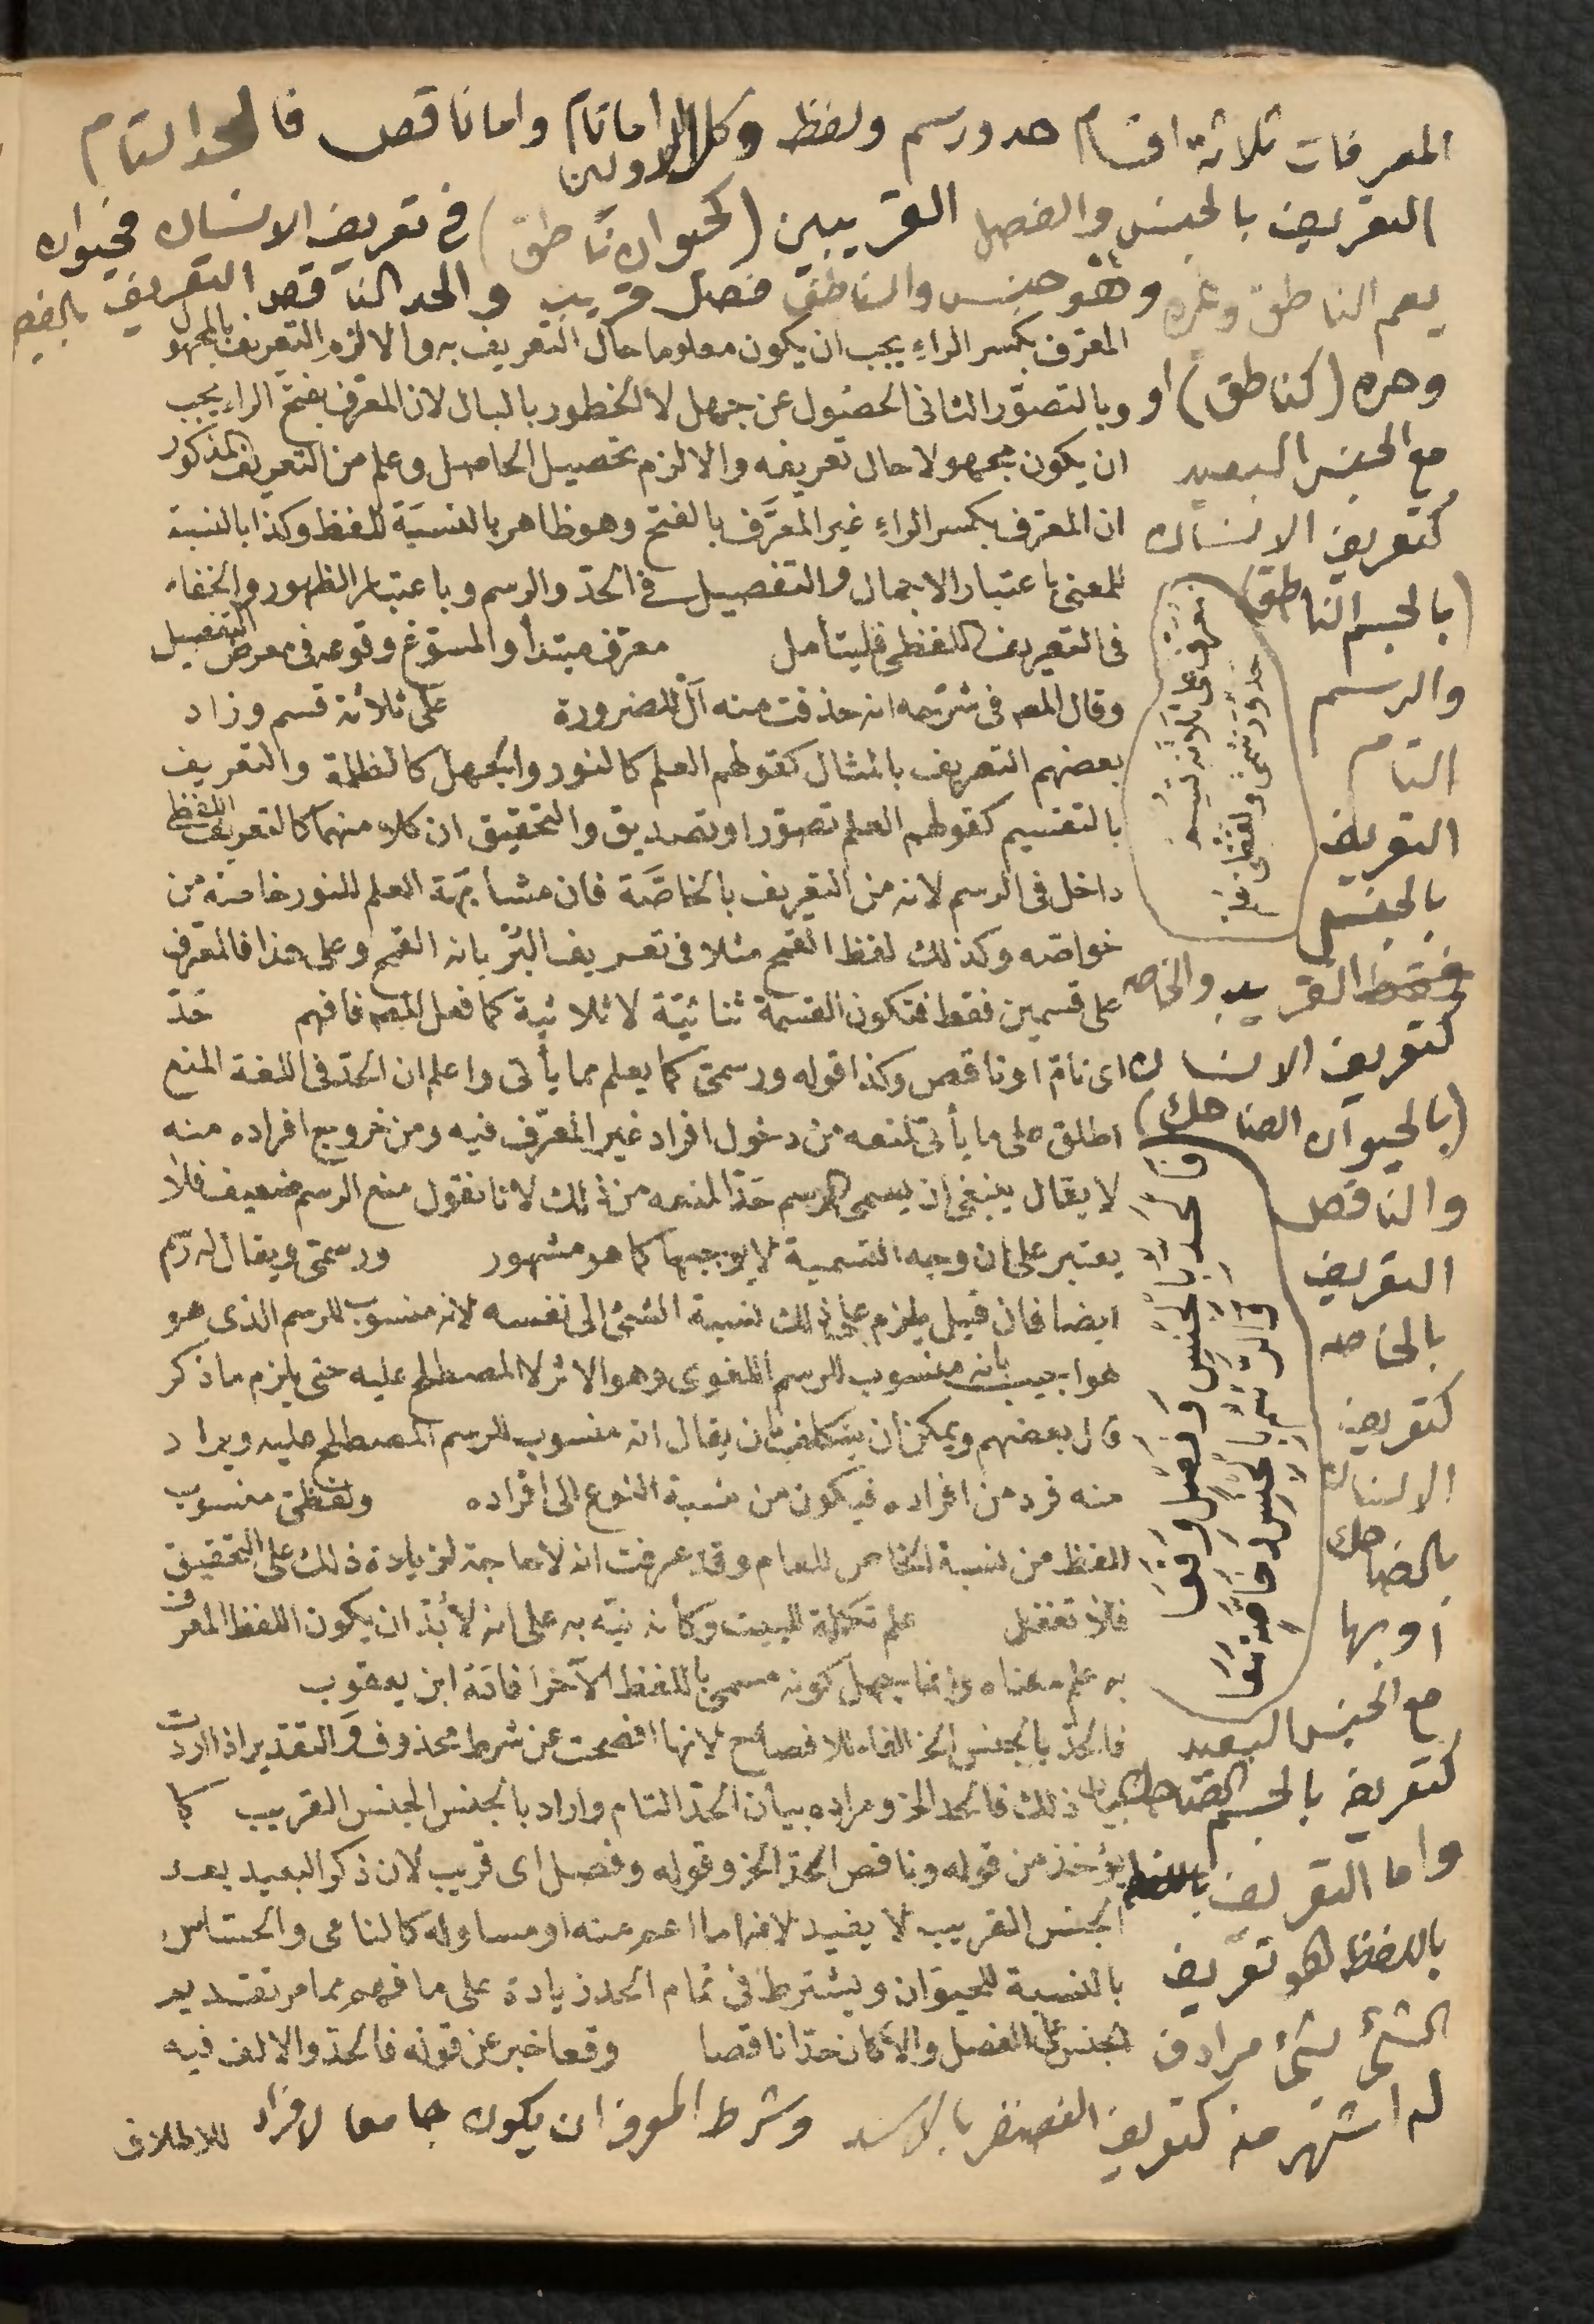 المعرفات ثلاثة اقسام حد ورسم ولفظ وكل الاولين اما تام واما ناقص فالحد التام
التعريف بالجنس والفصل القريبين (كحيوان ناطق) في تعريف الانسان فحيوان
يعم الناطق وغيره وهو جنس والناطق فصل قريب والحد الناقص التعريف بالفصل
وحده (كناطق) او
مع الجنس البعيد
كتعريف الانسان
(بالجسم الناطق)
والرسم
التام
التعريف
بالجنس
القريب والخاصه
كتعريف الانسان
(بالحيوان الضاحك)
والناقص
التعريف
بالخاصه
كتعريف
الانسان
بالضاحك
او بها
مع الجنس البعيد
كتعريف بالجسم الضاحك
واما التعريف
باللفظ هو تعريف
الشئ بشئ مرادف
له اشتهر منه كتعريف الغضنفر بالاسد وشرط المعرف ان يكون جامعا لافراد
معرف على ثلاثة قسم
حد ورسمي ولفظي علم
فالحد بالجنس وفصل وقعا
والرسم بالجنس وخاصة معا
المعرف بكسر الراء يجب ان يكون معلوما حال التعريف به والا لزم التعريف بالمجهول
وبالتصور الثانى الحصول عن جهل لا الخطور بالبال لان المعرف بفتح الراء يجب
ان يكون مجهولا حال تعريفه والا لزم تحصيل الحاصل وعلم من التعريف المذكور
ان المعرف بكسر الراء غير المعرف بالفتح وهو ظاهر بالنسبة للفظ وكذا بالنسبة
للمعنى باعتبار الاجمال والتفصيل فى الحد والرسم وباعتبار الظهور والخفاء
فى التعريف اللفظى فليتأمل معرف مبتدأ والمسوغ وقوعه فى معرض التفصيل
وقال المصـ فى شرحه انه حذفت منه أل للضرورة على ثلاثة قسم وزاد
بعضهم التعريف بالمثال كقولهم العلم كالنور والجهل كالظلمة والتعريف
بالتقسيم كقولهم العلم تصور او تصديق والتحقيق ان كلا منهما كالتعريف اللفظى
داخل فى الرسم لانه من التعريف بالخاصة فان مشابهة العلم للنور خاصة من
خواصه وكذلك لفظ القمح مثلا فى تعريف البر بانه القمح وعلى هذا فالمعرف
على قسمين فقط فتكون القسمة ثنائية لا ثلاثية كما فعل المصـ فافهم حد
اى تام او ناقص وكذا قوله ورسمى كما يعلم مما يأتى واعلم ان الحد فى اللغة المنع
اطلق على ما يأتى لمنعه من دخول افراد غير المعرف فيه ومن خروج افراده منه
لا يقال ينبغى ان يسمى الرسم حدا لمنعه من ذلك لانا نقول منع الرسم ضعيف فلا
يعتبر على ان وجه التسمية لا يوجبها كما هو مشهور ورسمى ويقال له رسم
ايضا فان قيل يلزم على ذلك نسبة الشئ الى نفسه لانه منسوب للرسم الذى هو
هو اجيب بانه منسوب للرسم اللغوى وهو الاثر لا المصطلح عليه حتى يلزم ما ذكر
قال بعضهم ويمكن ان يتكلف بان يقال انه منسوب للرسم المصطلح عليه ويراد
منه فرد من افراده فيكون من نسبة النوع الى افراده ولفظى منسوب
للفظ من نسبة الخاص للعام وقد عرفت انه لا حاجة لزيادة ذلك على التحقيق
فلا تغفل علم تكملة للبيت وكأنه نبه به على انه لا بد ان يكون اللفظ المعرف
به علم معناه وانما يجهل كونه مسمى باللفظ الآخر افاده ابن يعقوب
فالحد بالجنس الخ الفاء للافصاح لانها افصحت عن شرط محذوف والتقدير اذا اردت
بيان ذلك فالحد الخ ومراده بيان الحد التام واراد بالجنس الجنس القريب كما
يؤخذ من قوله وناقص الحد الخ وقوله وفصل اى قريب لان ذكر البعيد بعد
الجنس القريب لا يفيد لانه اما اعم منه او مساو له كالنامى والحساس
بالنسبة للحيوان ويشترط فى تمام الحد زيادة على ما فهم مما مر تقديم
الجنس على الفصل والا كان حدا ناقصا وقعا خبر عن قوله فالحد والالف فيه
للاطلاق